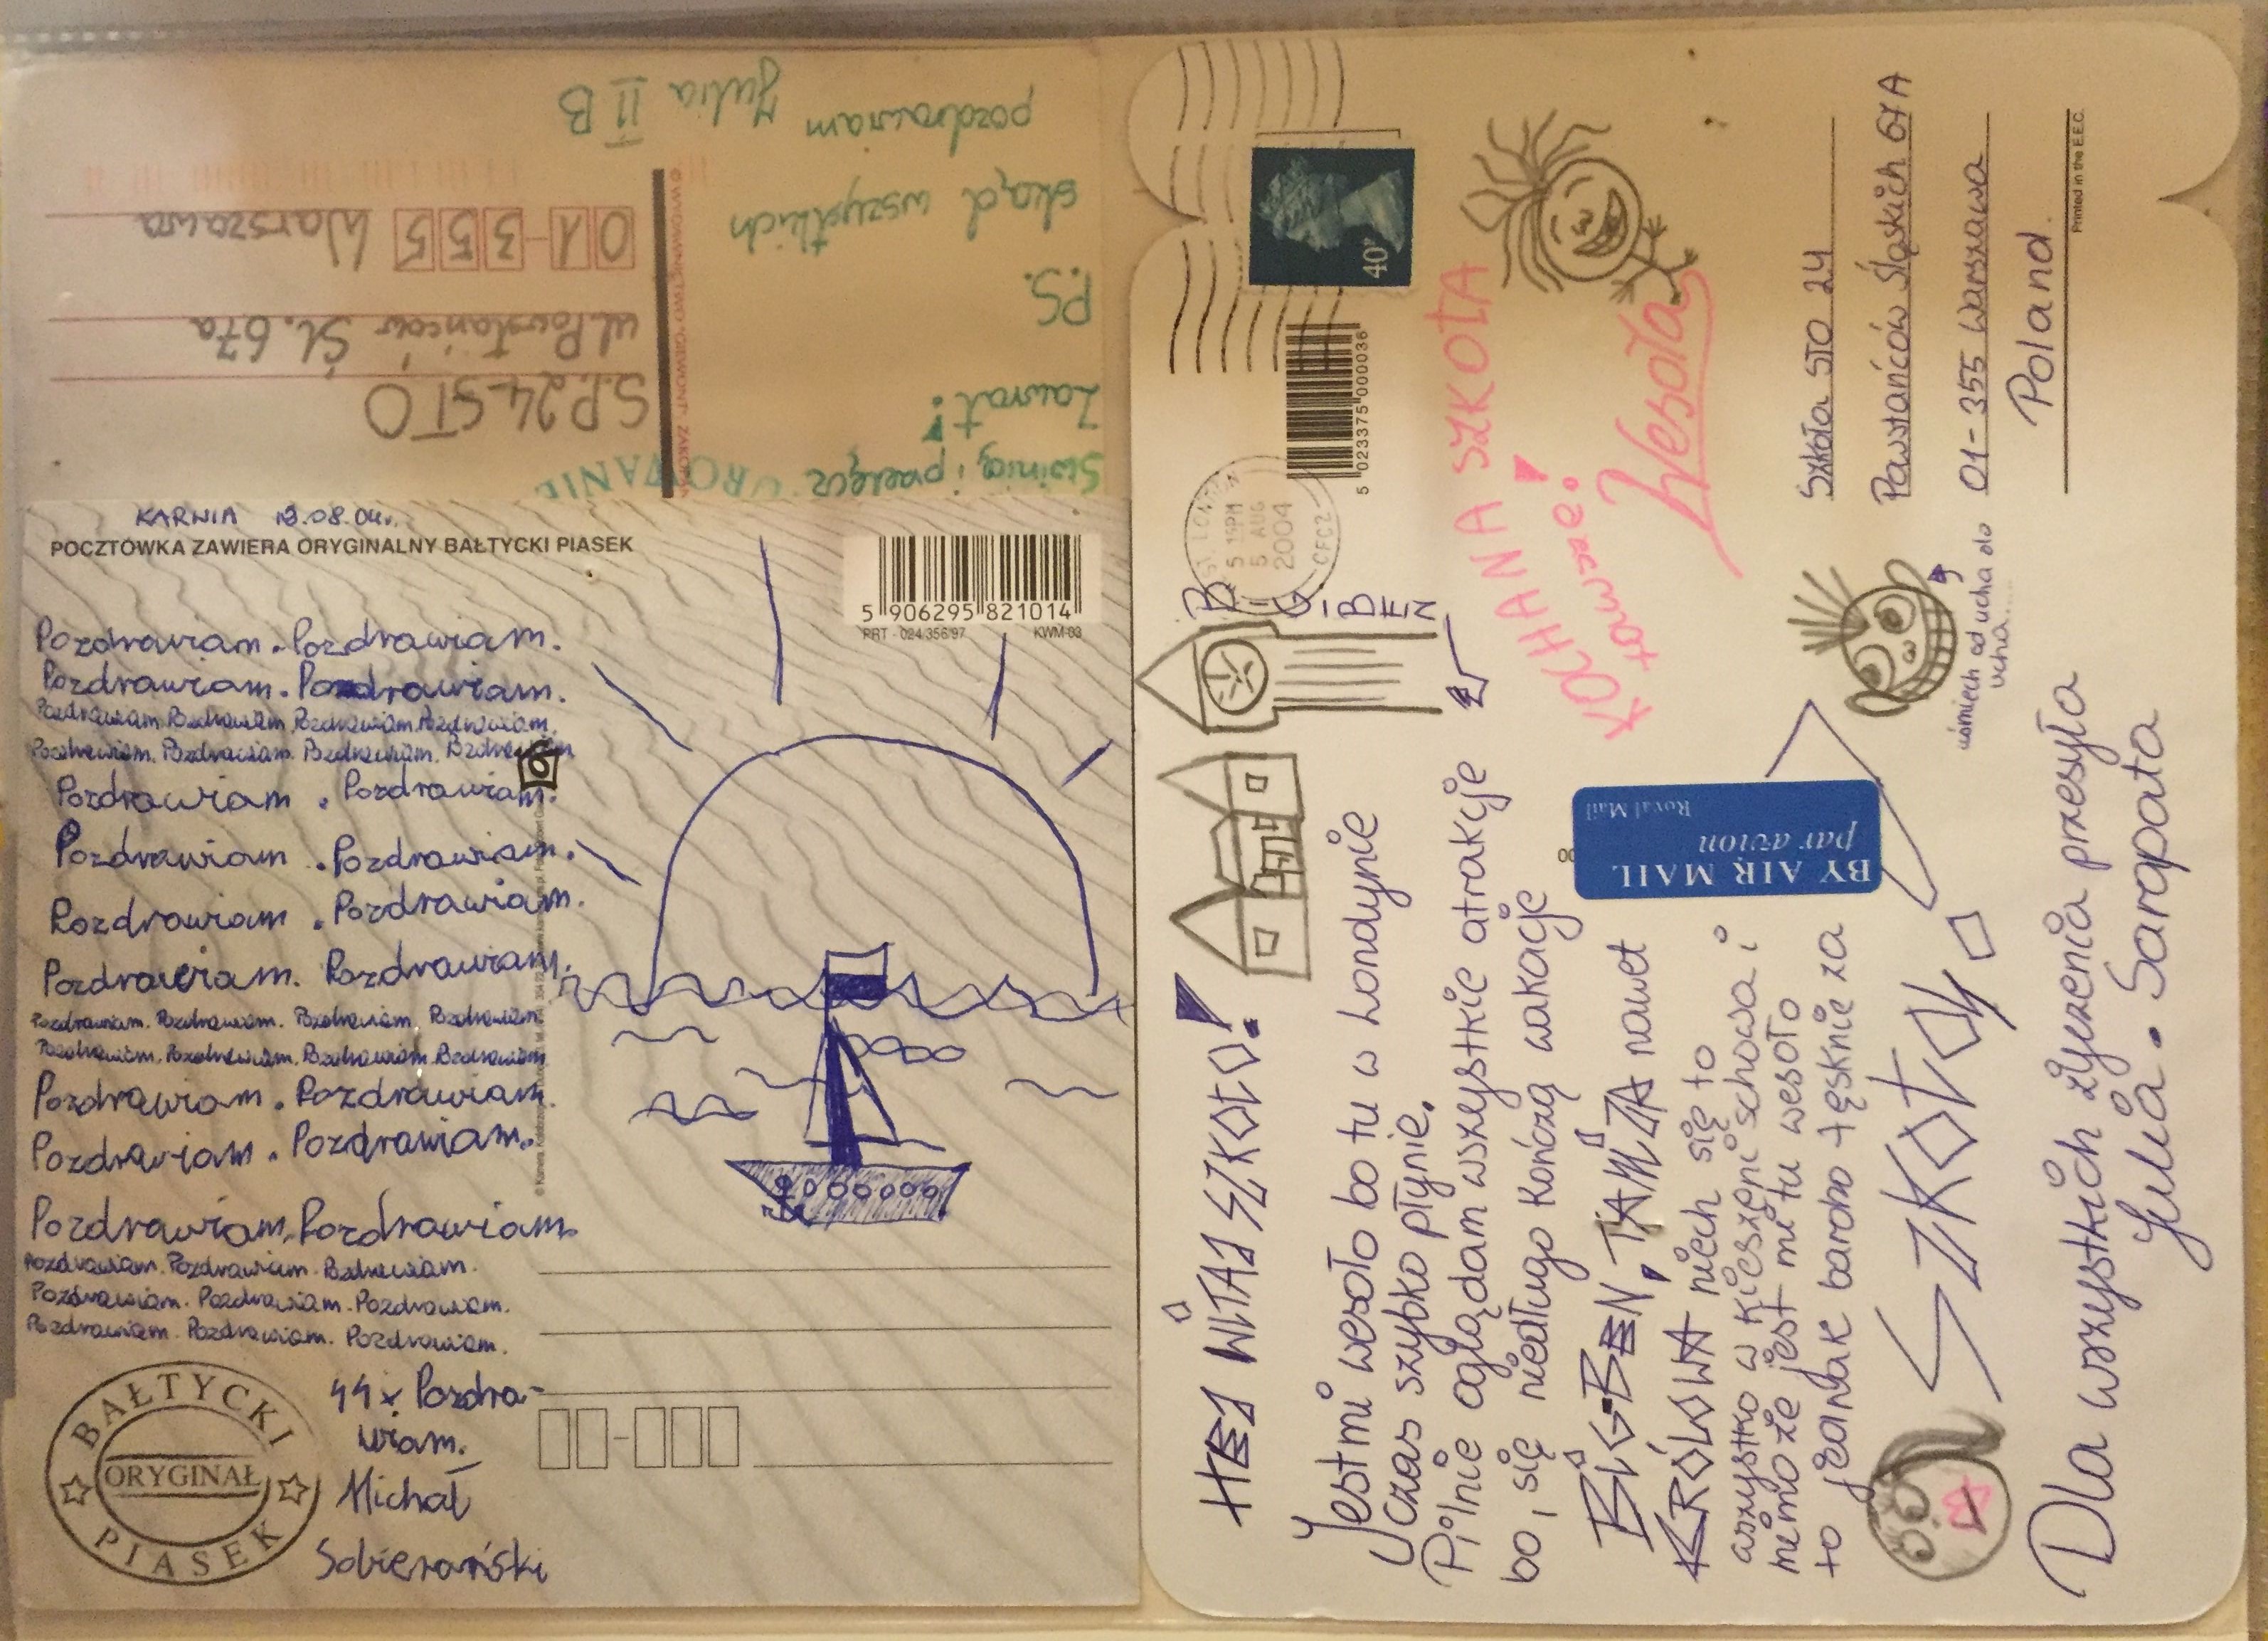 Świnią i przełęcz
Zawrat!
P.S.
skąd wszystkich
pozdrawiam Julia II B
S.P. 24 STO
ul. Powstańców Śl. 67a
01-355 Warszawa
KARNIA
POCZTÓWKA ZAWIERA ORYGINALNY BAŁTYCKI PIASEK
5 906295 821014
PRT - 024/356/97 KWM-03
Pozdrawiam. Pozdrawiam.
Pozdrawiam. Pozdrawiam.
Pozdrawiam. Pozdrawiam. Pozdrawiam. Pozdrawiam.
Pozdrawiam. Pozdrawiam. Pozdrawiam. Pozdrawiam
Pozdrawiam. Pozdrawiam.
Pozdrawiam. Pozdrawiam.
Pozdrawiam. Pozdrawiam.
Pozdrawiam. Pozdrawiam.
Pozdrawiam. Pozdrawiam. Pozdrawiam. Pozdrawiam.
Pozdrawiam. Pozdrawiam. Pozdrawiam. Pozdrawiam.
Pozdrawiam. Pozdrawiam.
Pozdrawiam. Pozdrawiam.
Pozdrawiam. Pozdrawiam.
Pozdrawiam. Pozdrawiam. Pozdrawiam.
Pozdrawiam. Pozdrawiam. Pozdrawiam.
Pozdrawiam. Pozdrawiam. Pozdrawiam.
44x Pozdra-
wiam.
Michał
Sobierański
BAŁTYCKI
ORYGINAŁ
PIASEK
HEJ WITAJ SZKOŁO!
BIG-BEN
Jest mi wesoło bo tu w Londynie
Czas szybko płynie.
Pilnie oglądam wszystkie atrakcje
bo, się niedługo kończą wakacje
BIG-BEN, TAMIZA nawet
KRÓLOWA niech się to
wszystko w kieszeni schowa i
mimo że jest mi tu wesoło
to jednak bardzo tęsknię za
SZKOŁĄ
Dla wszystkich życzenia przesyła
Julia. Sarapata
uśmiech od ucha do
ucha....
KOCHANA SZKOŁA
zawsze!
Wesoła
40P
5PM
5 AUG
2004
5 023375 000036
BY AIR MAIL
par avion
Royal Mail
Szkoła STO 24
Powstańców Śląskich 67A
01-355 Warszawa
Poland.
Printed in the E.E.C.